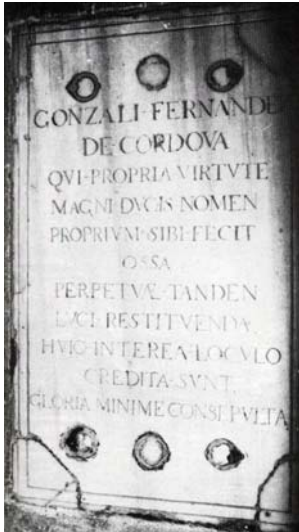 GONZALI·FERNANDE
DE·CORDOVA
QVI·PROPRIA·VIRTVTE
MAGNI·DVCIS·NOMEN
PROPRIVM·SIBI·FECIT
OSSA
PERPETVÆ·TANDEN
LVCI·RESTITVENDA
HVIC·INTEREA·LOCVLO
CREDITA·SVNT
GLORIA MINIME CONSEPVLTA